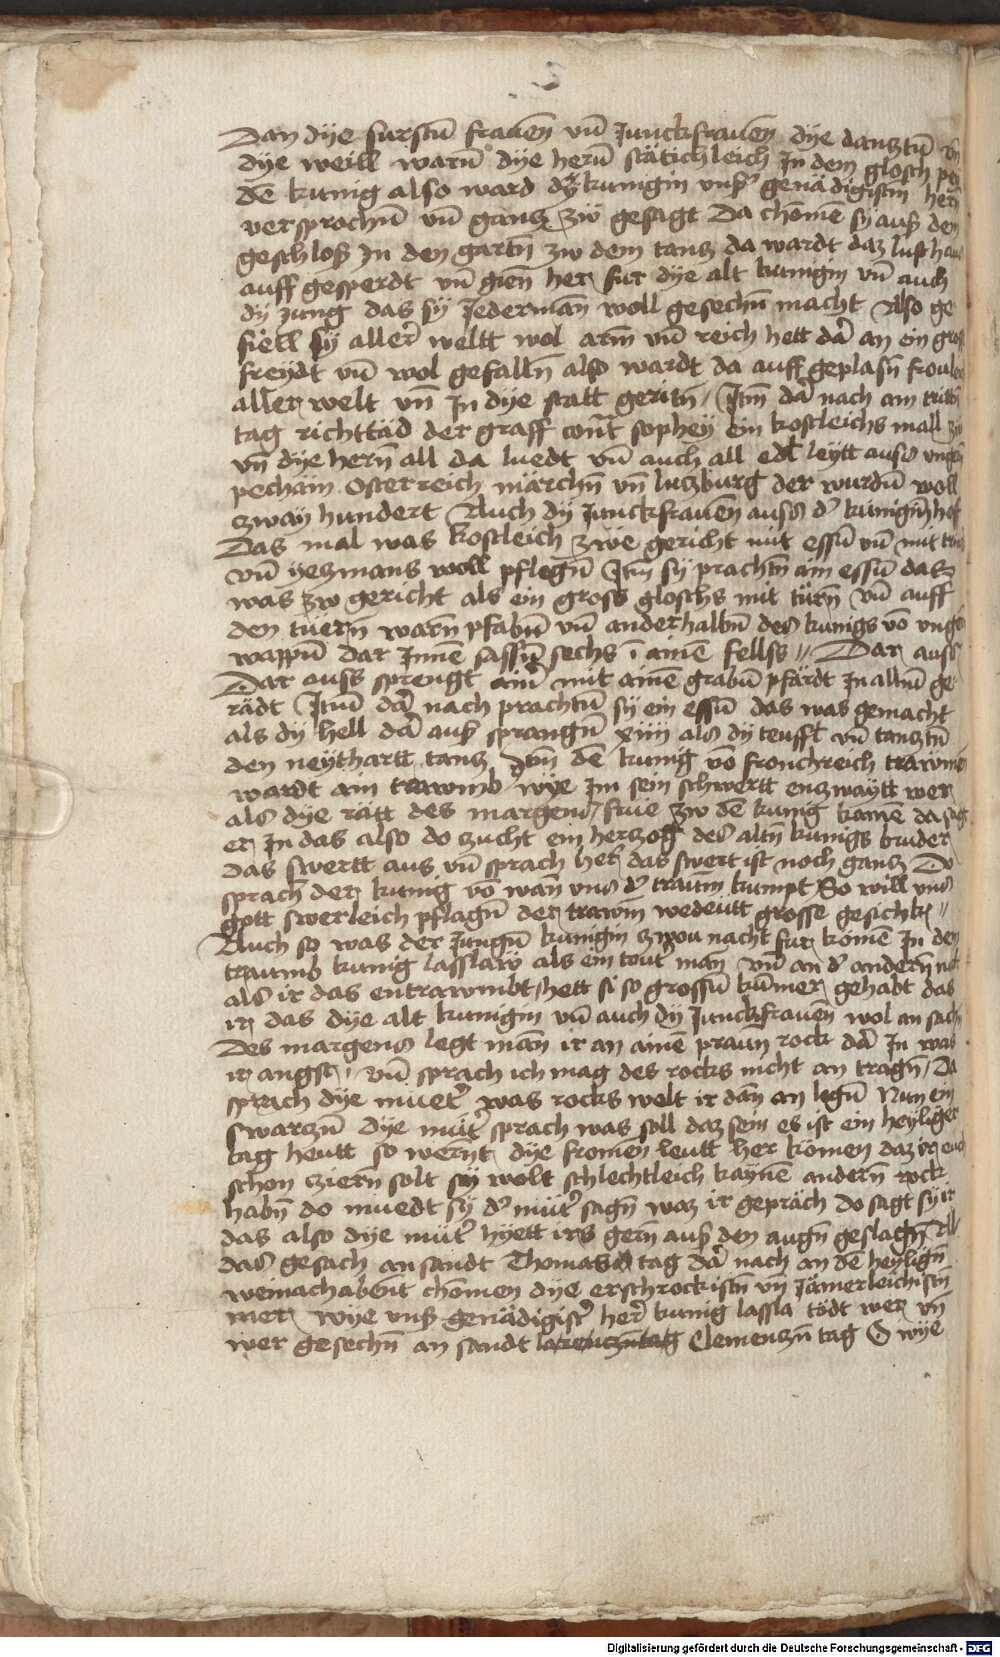 Dan dÿe furstn̄ frauen vn̄ Junckfrauen dÿe dansztn̄ vn̄
dÿe weill warn̄ dÿe hern̄ stätichleich In dem glosch pey
dē kunig also ward dÿ kunigin vnsʾ genädigistin hern̄
versprochn̄ vn̄ gantz zw̄ gesagt Da chomē sÿ auß dem
geschloß In den gartn̄ zw dem tantz da wardt daz lusthaus
auff gesperdt vn̄ gien her fur dÿe alt kunigin vn̄ auch
dÿ Jung das sÿ Jedermān woll gesechn̄ macht Also ge
fiell sÿ allerˀ weltt wol arm vn̄ reich hett dāʾ an ein gross
freÿdt vn̄ wol gefalln̄ also wardt da auff geplasn̄
aller welt vn̄ In dÿe statt geritn̄ / Itm̄ dāʾ nach am
tag richttäd der graff sopheÿ ein kostleichs mall
vn̄ dÿe hern̄ all da luedt vn̄ auch all edl leÿtt auss vngern̄
pecham Osterreich märchn̄ vn̄ lutzburg der wurdn̄ woll
zwaÿ hundert Auch dÿ Junckfrauen auss dʾ kunigin̄ hof
Das mal was kostleich zwē gericht mit essn̄ vn̄ mit
vn̄ woll pflegn̄ Itm̄ sÿ prachtn̄ ain essn̄ das
was zw gericht als ein gross gloschs mit turn̄ vn̄ auff
den tuern̄ warn̄ pfabn̄ vn̄ anderhalbn̄ des kunigs vō vngern̄
wappn̄ dar Innē sassn̄ sechs ī ainē fellss // Dar auss
Dar auss sprengt ainʾ mit ainē grabn̄ pfärdt In allm̄ ge
rädt Itm̄ dāʾ nach prachtn̄ sÿ ein essn̄ das was gemacht
als dÿ hell dāʾ auß sprangn̄ xiiij als dÿ teuffl vn̄ tansztn̄
den neÿthartt tantz Itm̄ dē kunig vō fronchreich
wardt ain trawmb wÿe Im sein schwertt entzwaÿtt wer
als dÿe rätt des margens frue zw dē kunig kamē da sagt
er In das also do zucht ein hertzog des altn̄ kunigs bruder
das swertt aus vn̄ sprach her das swert ist noch gantz Do
sprach der kunig vō wan̄ vns dʾ traum̄ kumpt So will vns
gott swerleich pflagn̄ der trawm̄ wedeutt grosse gesicht //
Auch so was der Jungn̄ kunigin zwu nacht fur komē In dem
traumb kunig lasslaw̄ als ein tout man̄ vn̄ an dʾ andern̄
als ir das entrawmbt hett si so grossn̄ kumer gehabt das
ir das dÿe alt kunigin vn̄ auch dÿ Junckfrauen wol an sachn̄
Des margens legt man̄ ir an ainē praun̄ rock dāʾ In was
ir angst vn̄ sprach ich mag des rocks nicht an tragn̄ / Da
sprach dÿe muetʾ was rocks wolt ir dan an legn̄ Nun ein
swartzn̄ Dÿe mutʾ sprach was soll daz sein es ist ein heÿliger
tag heutt so wernt dÿe fromen leutt her komen daz ir euch
schon ziern̄ solt sÿ wolt schlechtleich kaÿnē andern̄ rock
habn̄ do muedt sÿ dʾ mutʾ sagn̄ waz ir gepräch do sagt sÿ ir
das also dÿe mutʾ hÿett irs gern̄ auß den augn̄ geslagn̄
das gesach an sandt Thomas tag dāʾ nach an dē heÿlign̄
weinachabent chomen dÿe erschrockistn̄ vn̄ Jämerleichistn̄
mer wÿe vnsʾ genädigistʾ herʾ kunig lassla tödt wer vn̄
wer gesechn̄ an sandt Clementzn̄ tag O wÿe
Digitalisierung gefördert durch die Deutsche Forschungsgemeinschaft - DFG